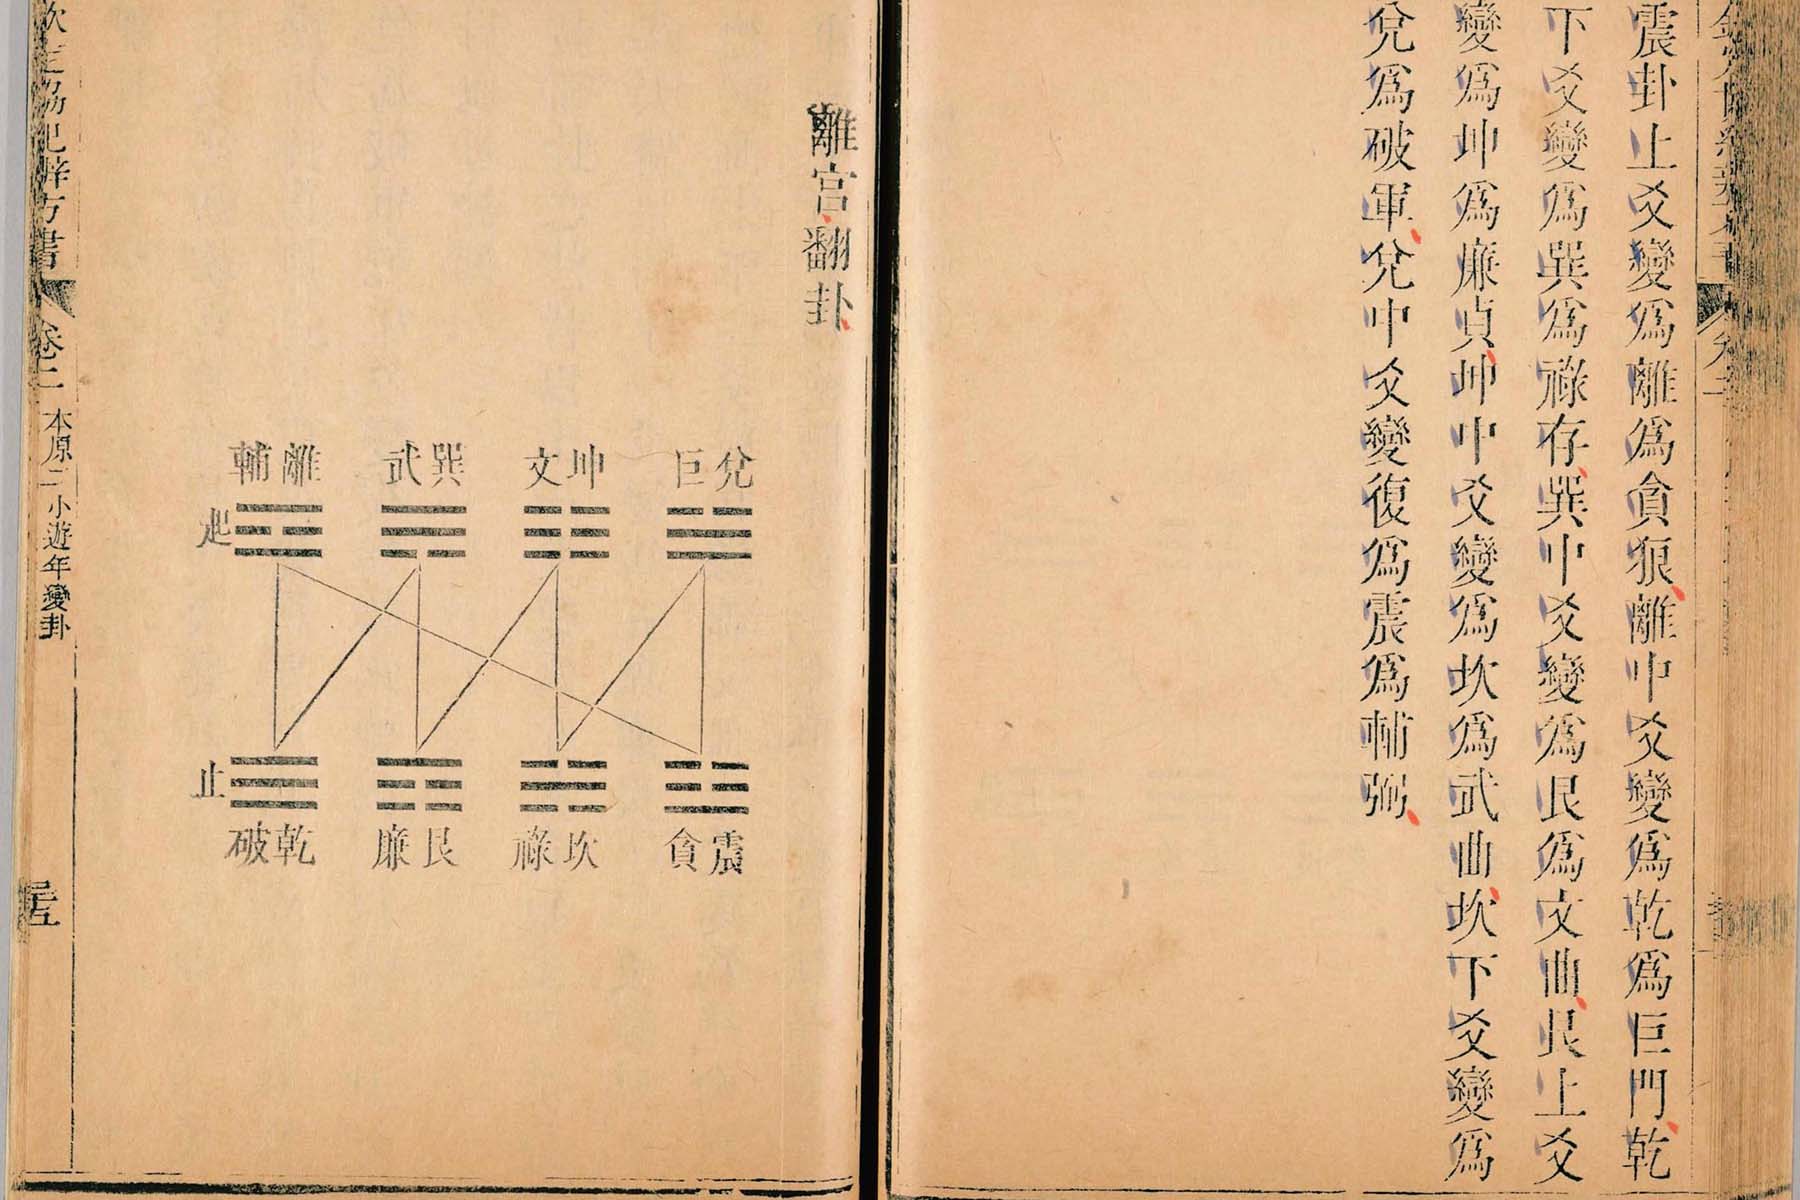 震卦上爻變爲離爲貪狼離中爻變爲乾爲巨門乾
下爻變爲巽爲祿存巽中爻變爲艮爲文曲艮上爻
變爲坤爲廉貞坤中爻變爲坎爲武曲坎下爻變爲
兌爲破軍兌中爻變復爲震爲輔弼
離宮翻卦
兌巨
坤文
巽武
離輔
起
震貪
坎祿
艮廉
乾破
止
欽定協紀辨方書
卷二
本原二
小遊年變卦